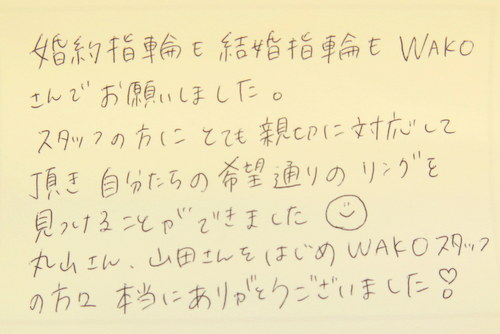 婚約指輪も結婚指輪も WAKO
さんでお願いしました。
スタッフの方に とても 親切に対応して
頂き 自分たちの希望通りの リングを
見つけることができました ☺
丸山さん、山田さんをはじめ WAKOスタッフ
の方々 本当にありがとうございました♡